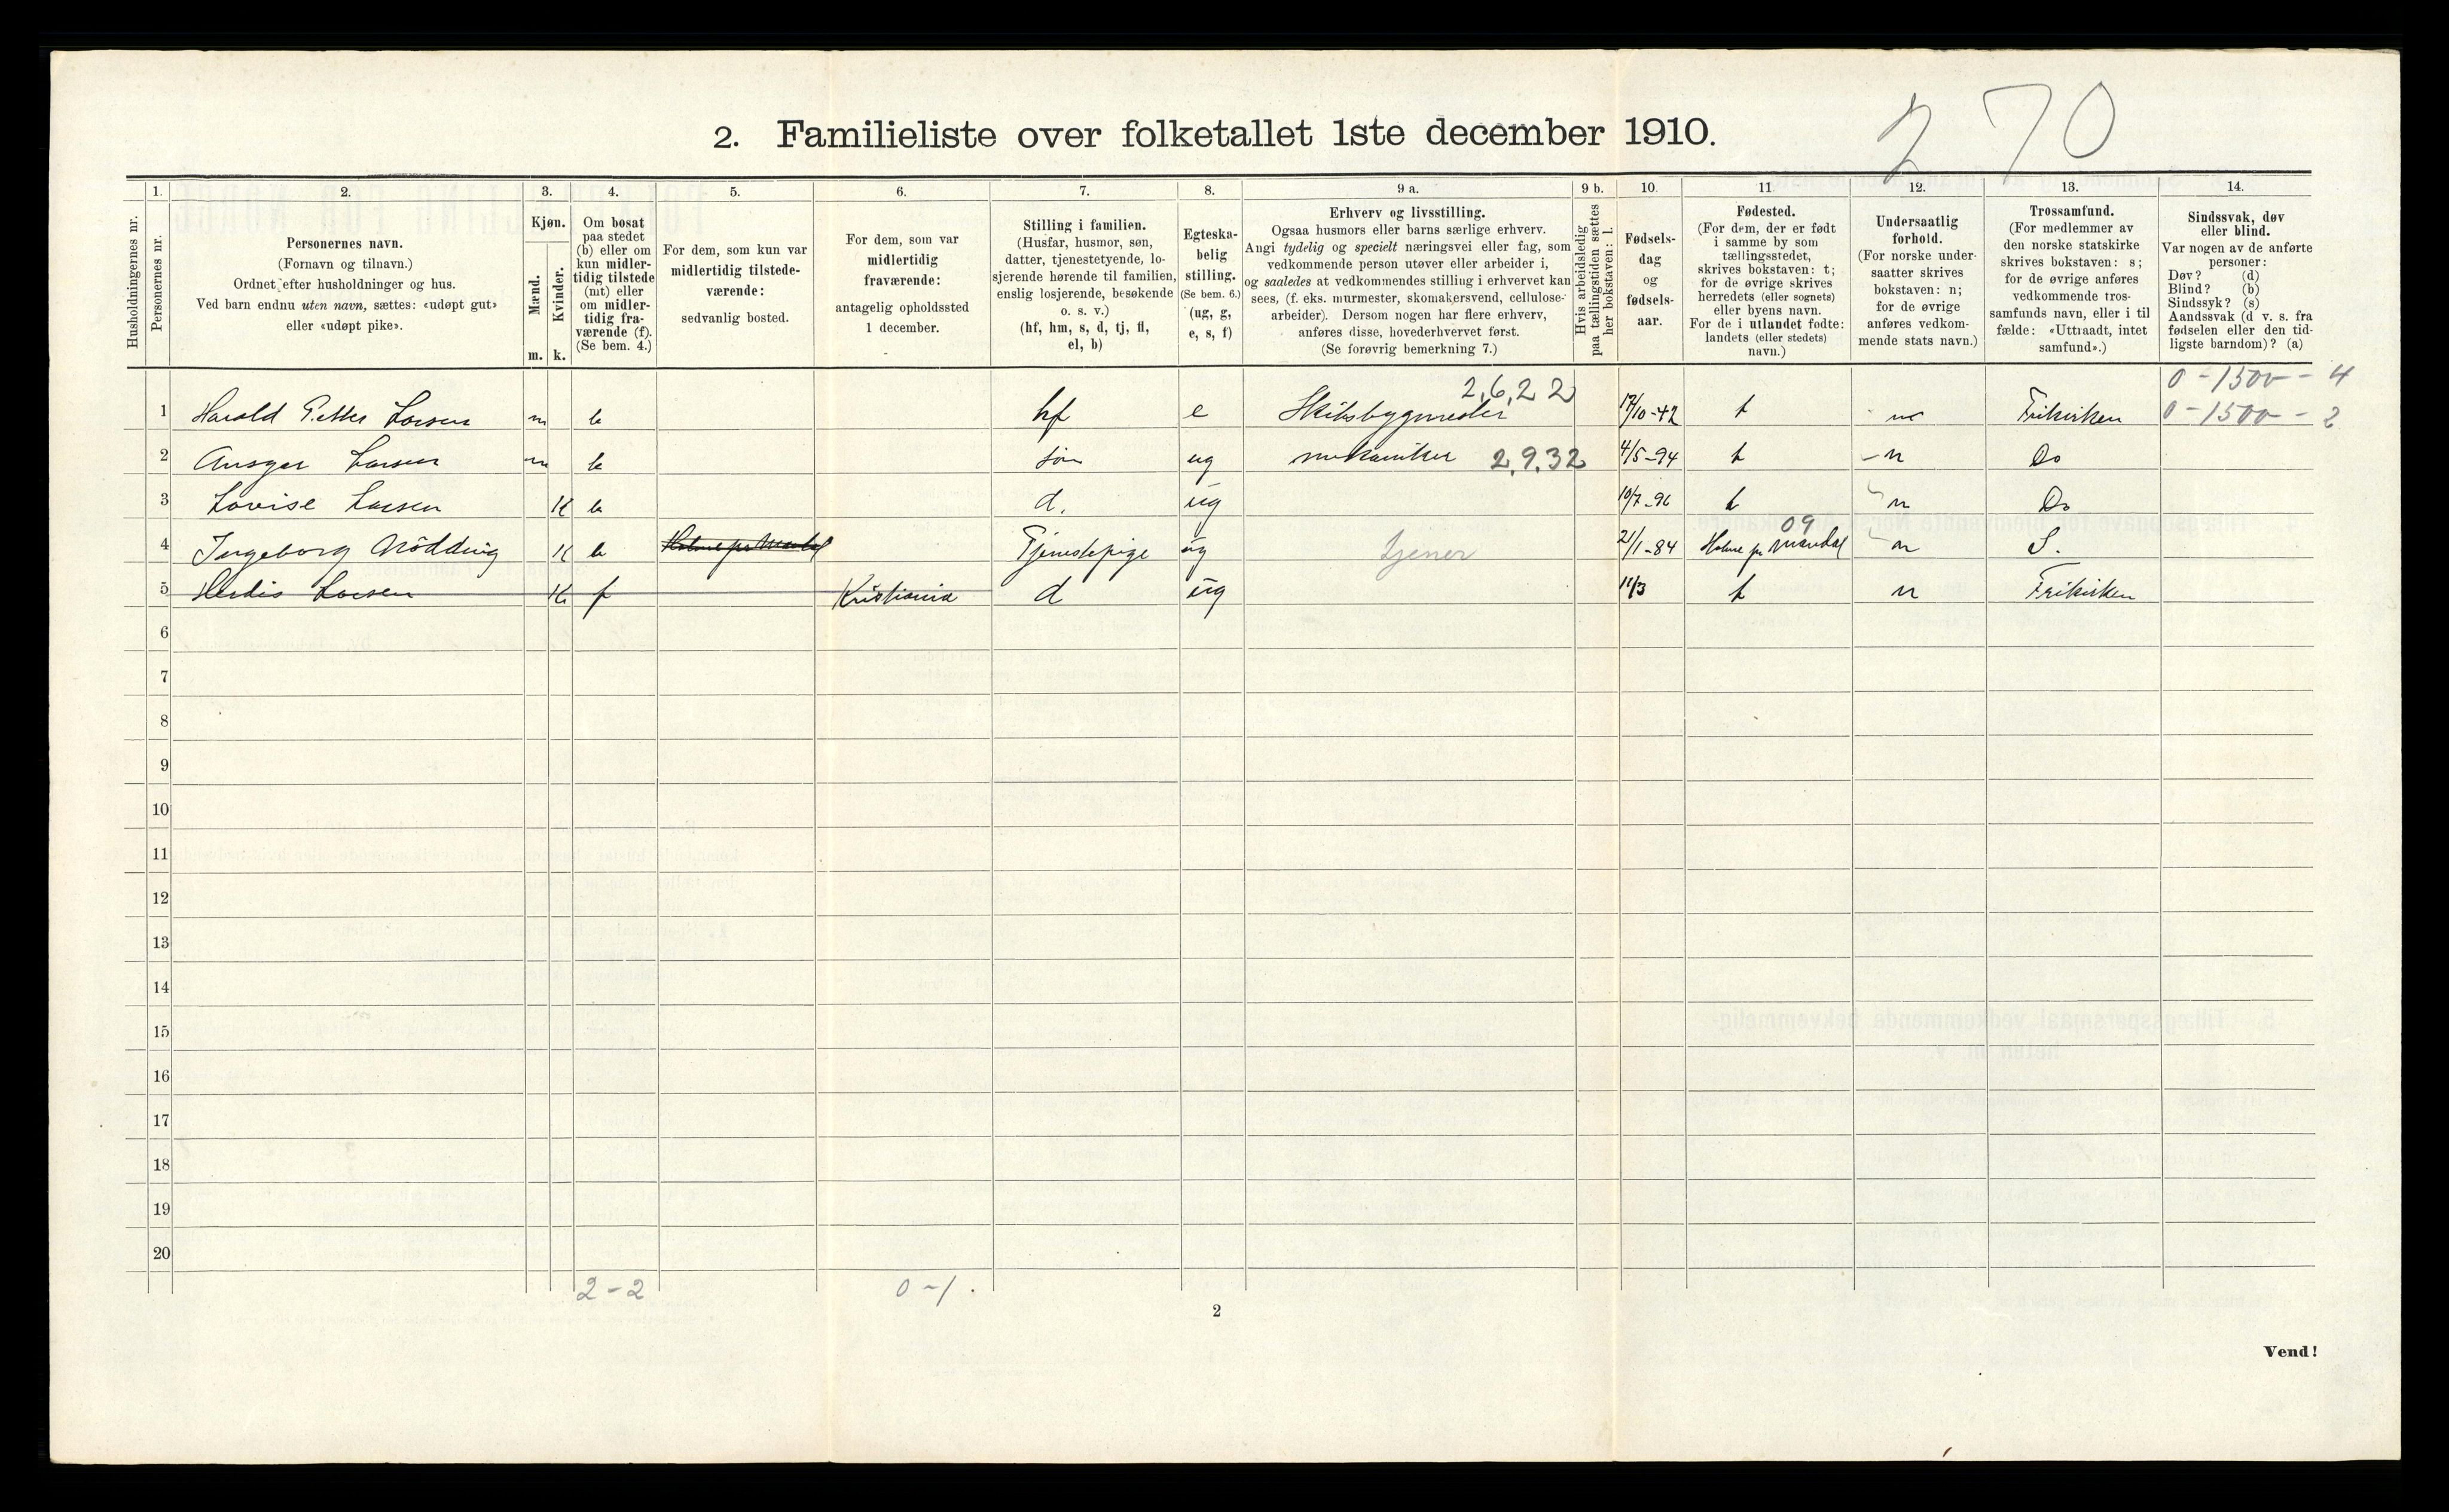 270
2. Familieliste over folketallet 1ste december 1910.
Husholdningernes nr.
1.
Personernes nr.
2.
Personernes navn.
(Fornavn og tilnavn.)
Ordnet efter husholdninger og hus.
Ved barn endnu uten navn, sættes: «udøpt gut»
eller «udøpt pike».
3.
Kjøn.
Mænd.
Kvinder.
m. k.
4.
Om bosat
paa stedet
(b) eller om
kun midler-
tidig tilstede
(mt) eller
om midler-
tidig fra-
værende (f).
(Se bem. 4.)
5.
For dem, som kun var
midlertidig tilstede-
værende:
sedvanlig bosted.
6.
For dem, som var
midlertidig
fraværende:
antagelig opholdssted
1 december.
7.
Stilling i familien.
(Husfar, husmor, søn,
datter, tjenestetyende, lo-
sjerende hørende til familien,
enslig losjerende, besøkende
o. s. v.)
(hf, hm, s, d, tj, fl,
el, b)
8.
Egteska-
belig
stilling.
(Se bem. 6.)
(ug, g,
e, s, f)
9 a.
Erhverv og livsstilling.
Ogsaa husmors eller barns særlige erhverv.
Angi tydelig og specielt næringsvei eller fag, som
vedkommende person utøver eller arbeider i,
og saaledes at vedkommendes stilling i erhvervet kan
sees, (f. eks. murmester, skomakersvend, cellulose-
arbeider). Dersom nogen har flere erhverv,
anføres disse, hovederhvervet først.
(Se forøvrig bemerkning 7.)
9 b.
Hvis arbeidsledig
paa tællingstiden sættes
her bokstaven: l.
10.
Fødsels-
dag
og
fødsels-
aar.
11.
Fødested.
(For dem, der er født
i samme by som
tællingsstedet,
skrives bokstaven: t;
for de øvrige skrives
herredets (eller sognets)
eller byens navn.
For de i utlandet fødte:
landets (eller stedets)
navn.)
12.
Undersaatlig
forhold.
(For norske under-
saatter skrives
bokstaven: n;
for de øvrige
anføres vedkom-
mende stats navn.)
13.
Trossamfund.
(For medlemmer av
den norske statskirke
skrives bokstaven: s;
for de øvrige anføres
vedkommende tros-
samfunds navn, eller i til
fælde: «Uttraadt, intet
samfund».)
14.
Sindssvak, døv
eller blind.
Var nogen av de anførte
personer:
Døv? (d)
Blind? (b)
Sindssyk? (s)
Aandssvak (d v. s. fra
fødselen eller den tid-
ligste barndom)? (a)
2,6,22 0-1500-4
1 Harald Petter Larsen m b hf e Skibsbygmester 17/10-42 t n Frikirken 0-1500-2
2 Ansgar Larsen m b søn ug mekaniker 2,9,32 4/5-94 t n Do
3 Lovise Larsen K b d. ug 10/7-96 t n Do
09
4 Ingeborg Nödding K b Holme pr Mandal Tjenestepige ug tjener 21/1-84 Holme pr Mandal n S.
5 Herdis Larsen K f Kristiania d ug 11/3 t n Frikirken
6
7
8
9
10
11
12
13
14
15
16
17
18
19
20
2-2 0-1.
2
Vend!